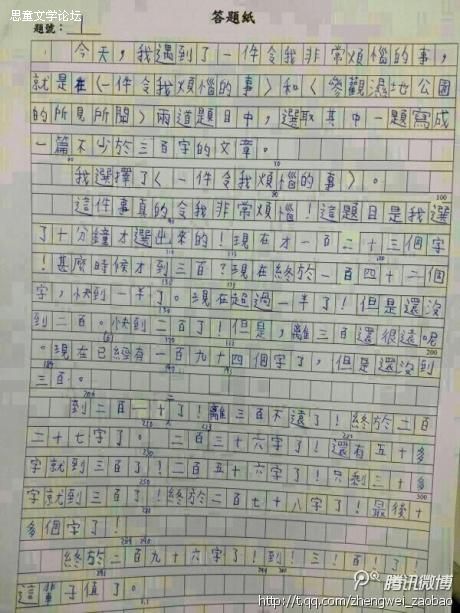 思童文学论坛
答題紙
題號：
今天，我遇到了一件令我非常煩惱的事，
就是在〈一件令我煩惱的事〉和〈參觀濕地公園
的所見所聞〉兩道題目中，選取其中一題寫成
一篇不少於三百字的文章。
我選擇了〈一件令我煩惱的事〉。
100
這件事真的令我非常煩惱！這題目是我選
了十分鐘才選出來的！現在才一百二十三個字
！甚麼時候才到三百？現在終於一百四十二個
字，快到一半了。現在超過一半了！但是還沒
到二百。快到二百了！但是，離三百還很遠呢
200
。現在已經有一百九十四個字了，但是還沒到
三百。
到二百一十了！離三百不遠了！終於二百
二十七字了。二百三十六字了！還有五十多
字就到三百了！二百五十六字了！只剩三十多
300
字就到三百了！終於二百七十八字了！最後十
多個字了！
終於二百九十六字了！到！三！百！了！
這輩子值了。
腾讯微博
http://t.qq.com/zhengwei_zaobao